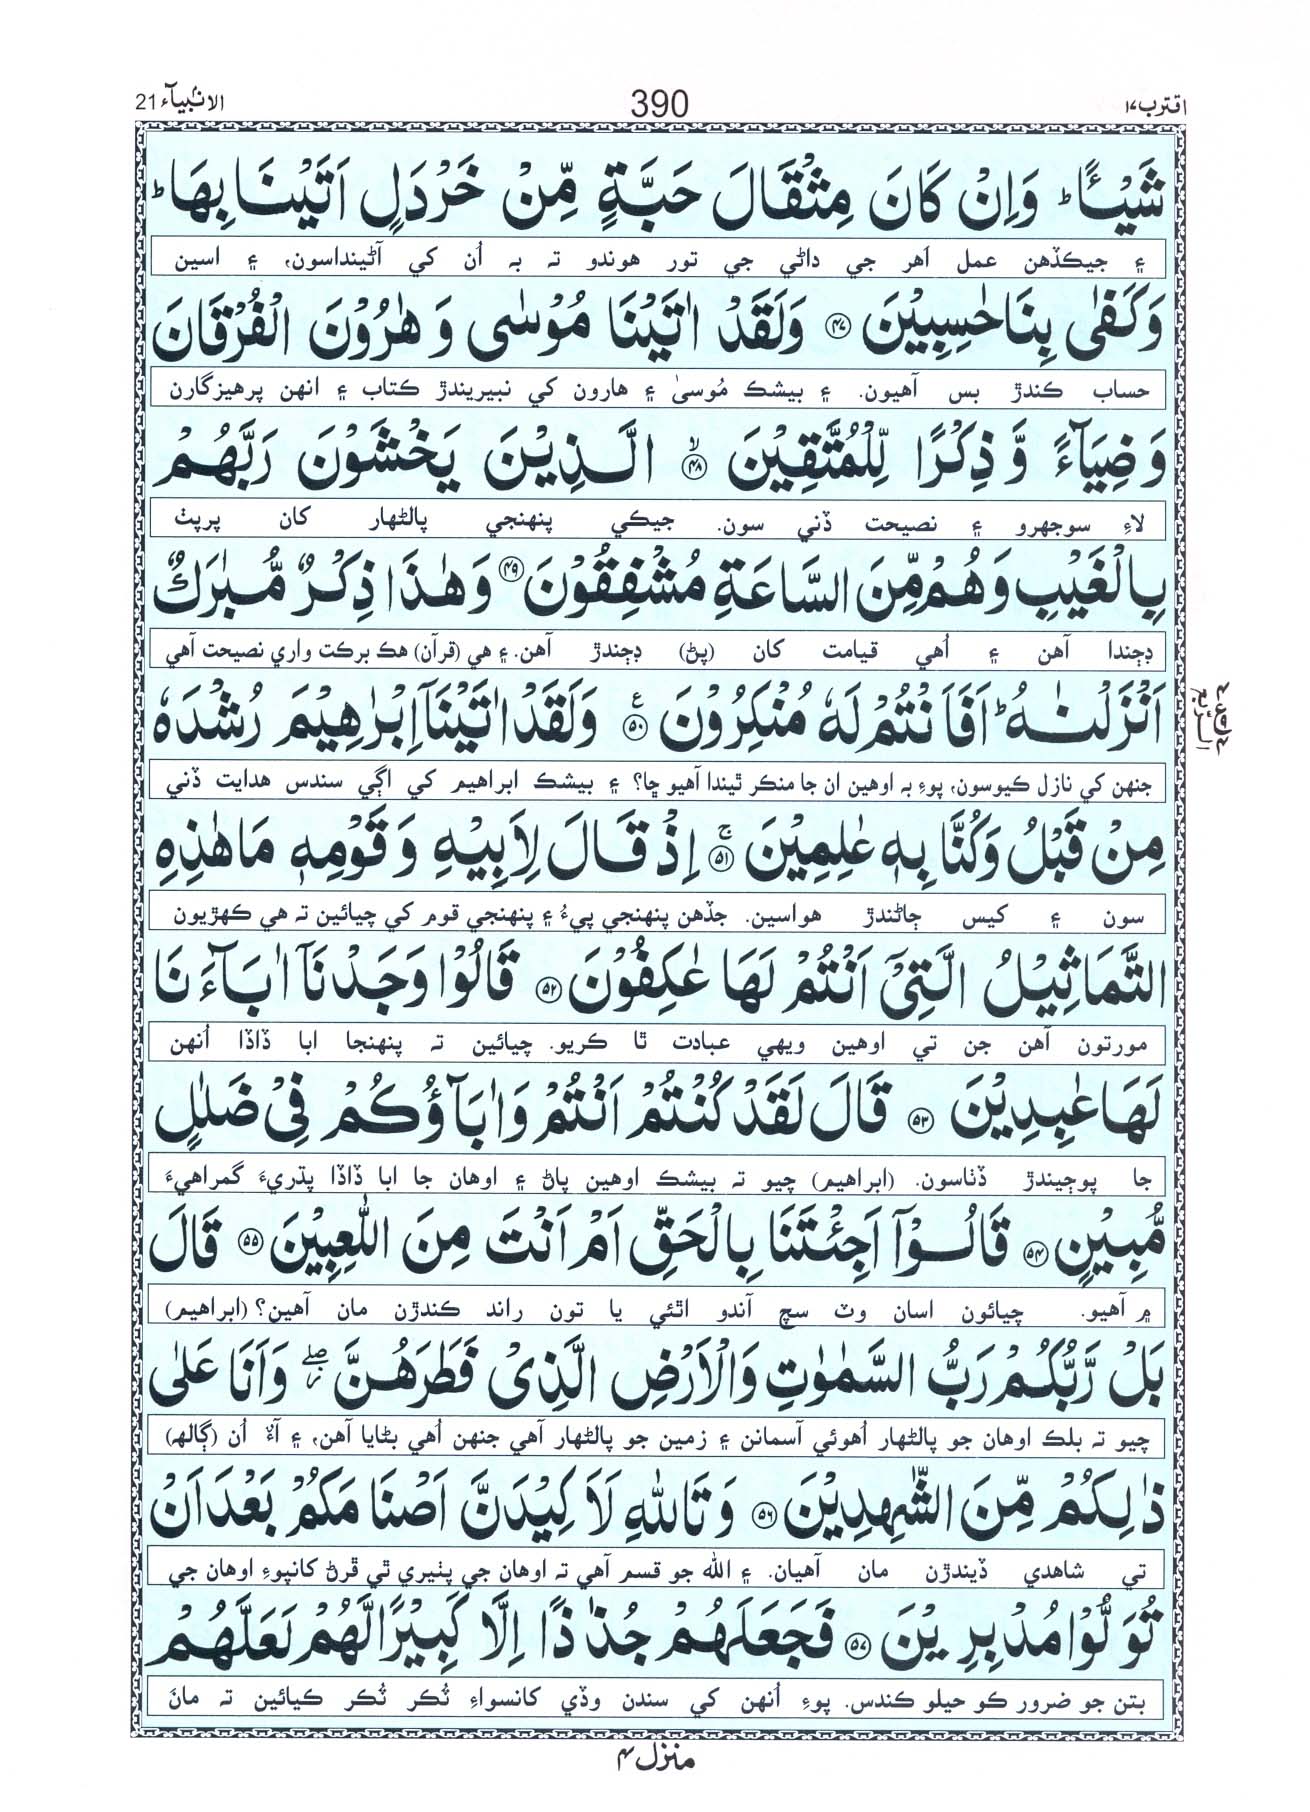 اقترب ۱۷
390
الانبیآء 21
شَيْـًٔاؕ وَاِنْ كَانَ مِثْقَالَ حَبَّةٍ مِّنْ خَرْدَلٍ اَتَيْنَا بِهَاؕ
۽ جيڪڏهن عمل اَهر جي داڻي جي تور هوندو تہ بہ اُن کي آڻينداسون، ۽ اسين
وَكَفٰى بِنَا حٰسِبِيْنَ ﴿۴۷﴾ وَلَقَدْ اٰتَيْنَا مُوْسٰى وَهٰرُوْنَ الْفُرْقَانَ
حساب ڪندڙ بس آهيون. ۽ بيشڪ مُوسيٰ ۽ هارون کي نبيريندڙ ڪتاب ۽ انهن پرهيزگارن
وَضِيَآءً وَّذِكْرًا لِّلْمُتَّقِيْنَ ۙ﴿۴۸﴾ الَّذِيْنَ يَخْشَوْنَ رَبَّهُمْ
لاءِ سوجهرو ۽ نصيحت ڏني سون. جيڪي پنهنجي پالڻهار کان پرپٺ
بِالْغَيْبِ وَهُمْ مِّنَ السَّاعَةِ مُشْفِقُوْنَ ﴿۴۹﴾ وَهٰذَا ذِكْرٌ مُّبٰرَكٌ
ڊڄندا آهن ۽ اُهي قيامت کان (پڻ) ڊڄندڙ آهن. ۽ هي (قرآن) هڪ برڪت واري نصيحت آهي
اَنْزَلْنٰهُؕ اَفَاَنْتُمْ لَهٗ مُنْكِرُوْنَ ﴿۵۰﴾ ع وَلَقَدْ اٰتَيْنَآ اِبْرٰهِيْمَ رُشْدَهٗ
الرّبع
جنهن کي نازل ڪيوسون، پوءِ بہ اوهين ان جا منڪر ٿيندا آهيو ڇا؟ ۽ بيشڪ ابراهيم کي اڳي سندس هدايت ڏني
مِنْ قَبْلُ وَكُنَّا بِهٖ عٰلِمِيْنَ ۚ﴿۵۱﴾ اِذْ قَالَ لِاَبِيْهِ وَقَوْمِهٖ مَا هٰذِهِ
سون ۽ کيس ڄاڻندڙ هواسين. جڏهن پنهنجي پيءُ ۽ پنهنجي قوم کي چيائين تہ هي ڪهڙيون
التَّمَاثِيْلُ الَّتِيْٓ اَنْتُمْ لَهَا عٰكِفُوْنَ ﴿۵۲﴾ قَالُوْا وَجَدْنَآ اٰبَآءَنَا
مورتون آهن جن تي اوهين ويهي عبادت ٿا ڪريو. چيائين تہ پنهنجا ابا ڏاڏا اُنهن
لَهَا عٰبِدِيْنَ ﴿۵۳﴾ قَالَ لَقَدْ كُنْتُمْ اَنْتُمْ وَاٰبَآؤُكُمْ فِيْ ضَلٰلٍ
جا پوڄيندڙ ڏٺاسون. (ابراهيم) چيو تہ بيشڪ اوهين پاڻ ۽ اوهان جا ابا ڏاڏا پڌريءَ گمراهيءَ
مُّبِيْنٍ ﴿۵۴﴾ قَالُوْٓا اَجِئْتَنَا بِالْحَقِّ اَمْ اَنْتَ مِنَ اللّٰعِبِيْنَ ﴿۵۵﴾ قَالَ
۾ آهيو. چيائون اسان وٽ سچ آندو اٿئي يا تون راند ڪندڙن مان آهين؟ (ابراهيم)
بَلْ رَّبُّكُمْ رَبُّ السَّمٰوٰتِ وَالْاَرْضِ الَّذِيْ فَطَرَهُنَّ ۖز وَاَنَا عَلٰى
چيو تہ بلڪ اوهان جو پالڻهار اُهوئي آسمانن ۽ زمين جو پالڻهار آهي جنهن اُهي بڻايا آهن، ۽ آءٌ اُن (ڳالھ)
ذٰلِكُمْ مِّنَ الشّٰهِدِيْنَ ﴿۵۶﴾ وَتَاللّٰهِ لَاَكِيْدَنَّ اَصْنَامَكُمْ بَعْدَ اَنْ
تي شاهدي ڏيندڙن مان آهيان. ۽ الله جو قسم آهي تہ اوهان جي پٺيري ٿي ڦرڻ کانپوءِ اوهان جي
تُوَلُّوْا مُدْبِرِيْنَ ﴿۵۷﴾ فَجَعَلَهُمْ جُذٰذًا اِلَّا كَبِيْرًا لَّهُمْ لَعَلَّهُمْ
بتن جو ضرور ڪو حيلو ڪندس. پوءِ اُنهن کي سندن وڏي کانسواءِ ٽُڪر ٽُڪر ڪيائين تہ مانَ
منزل ۴